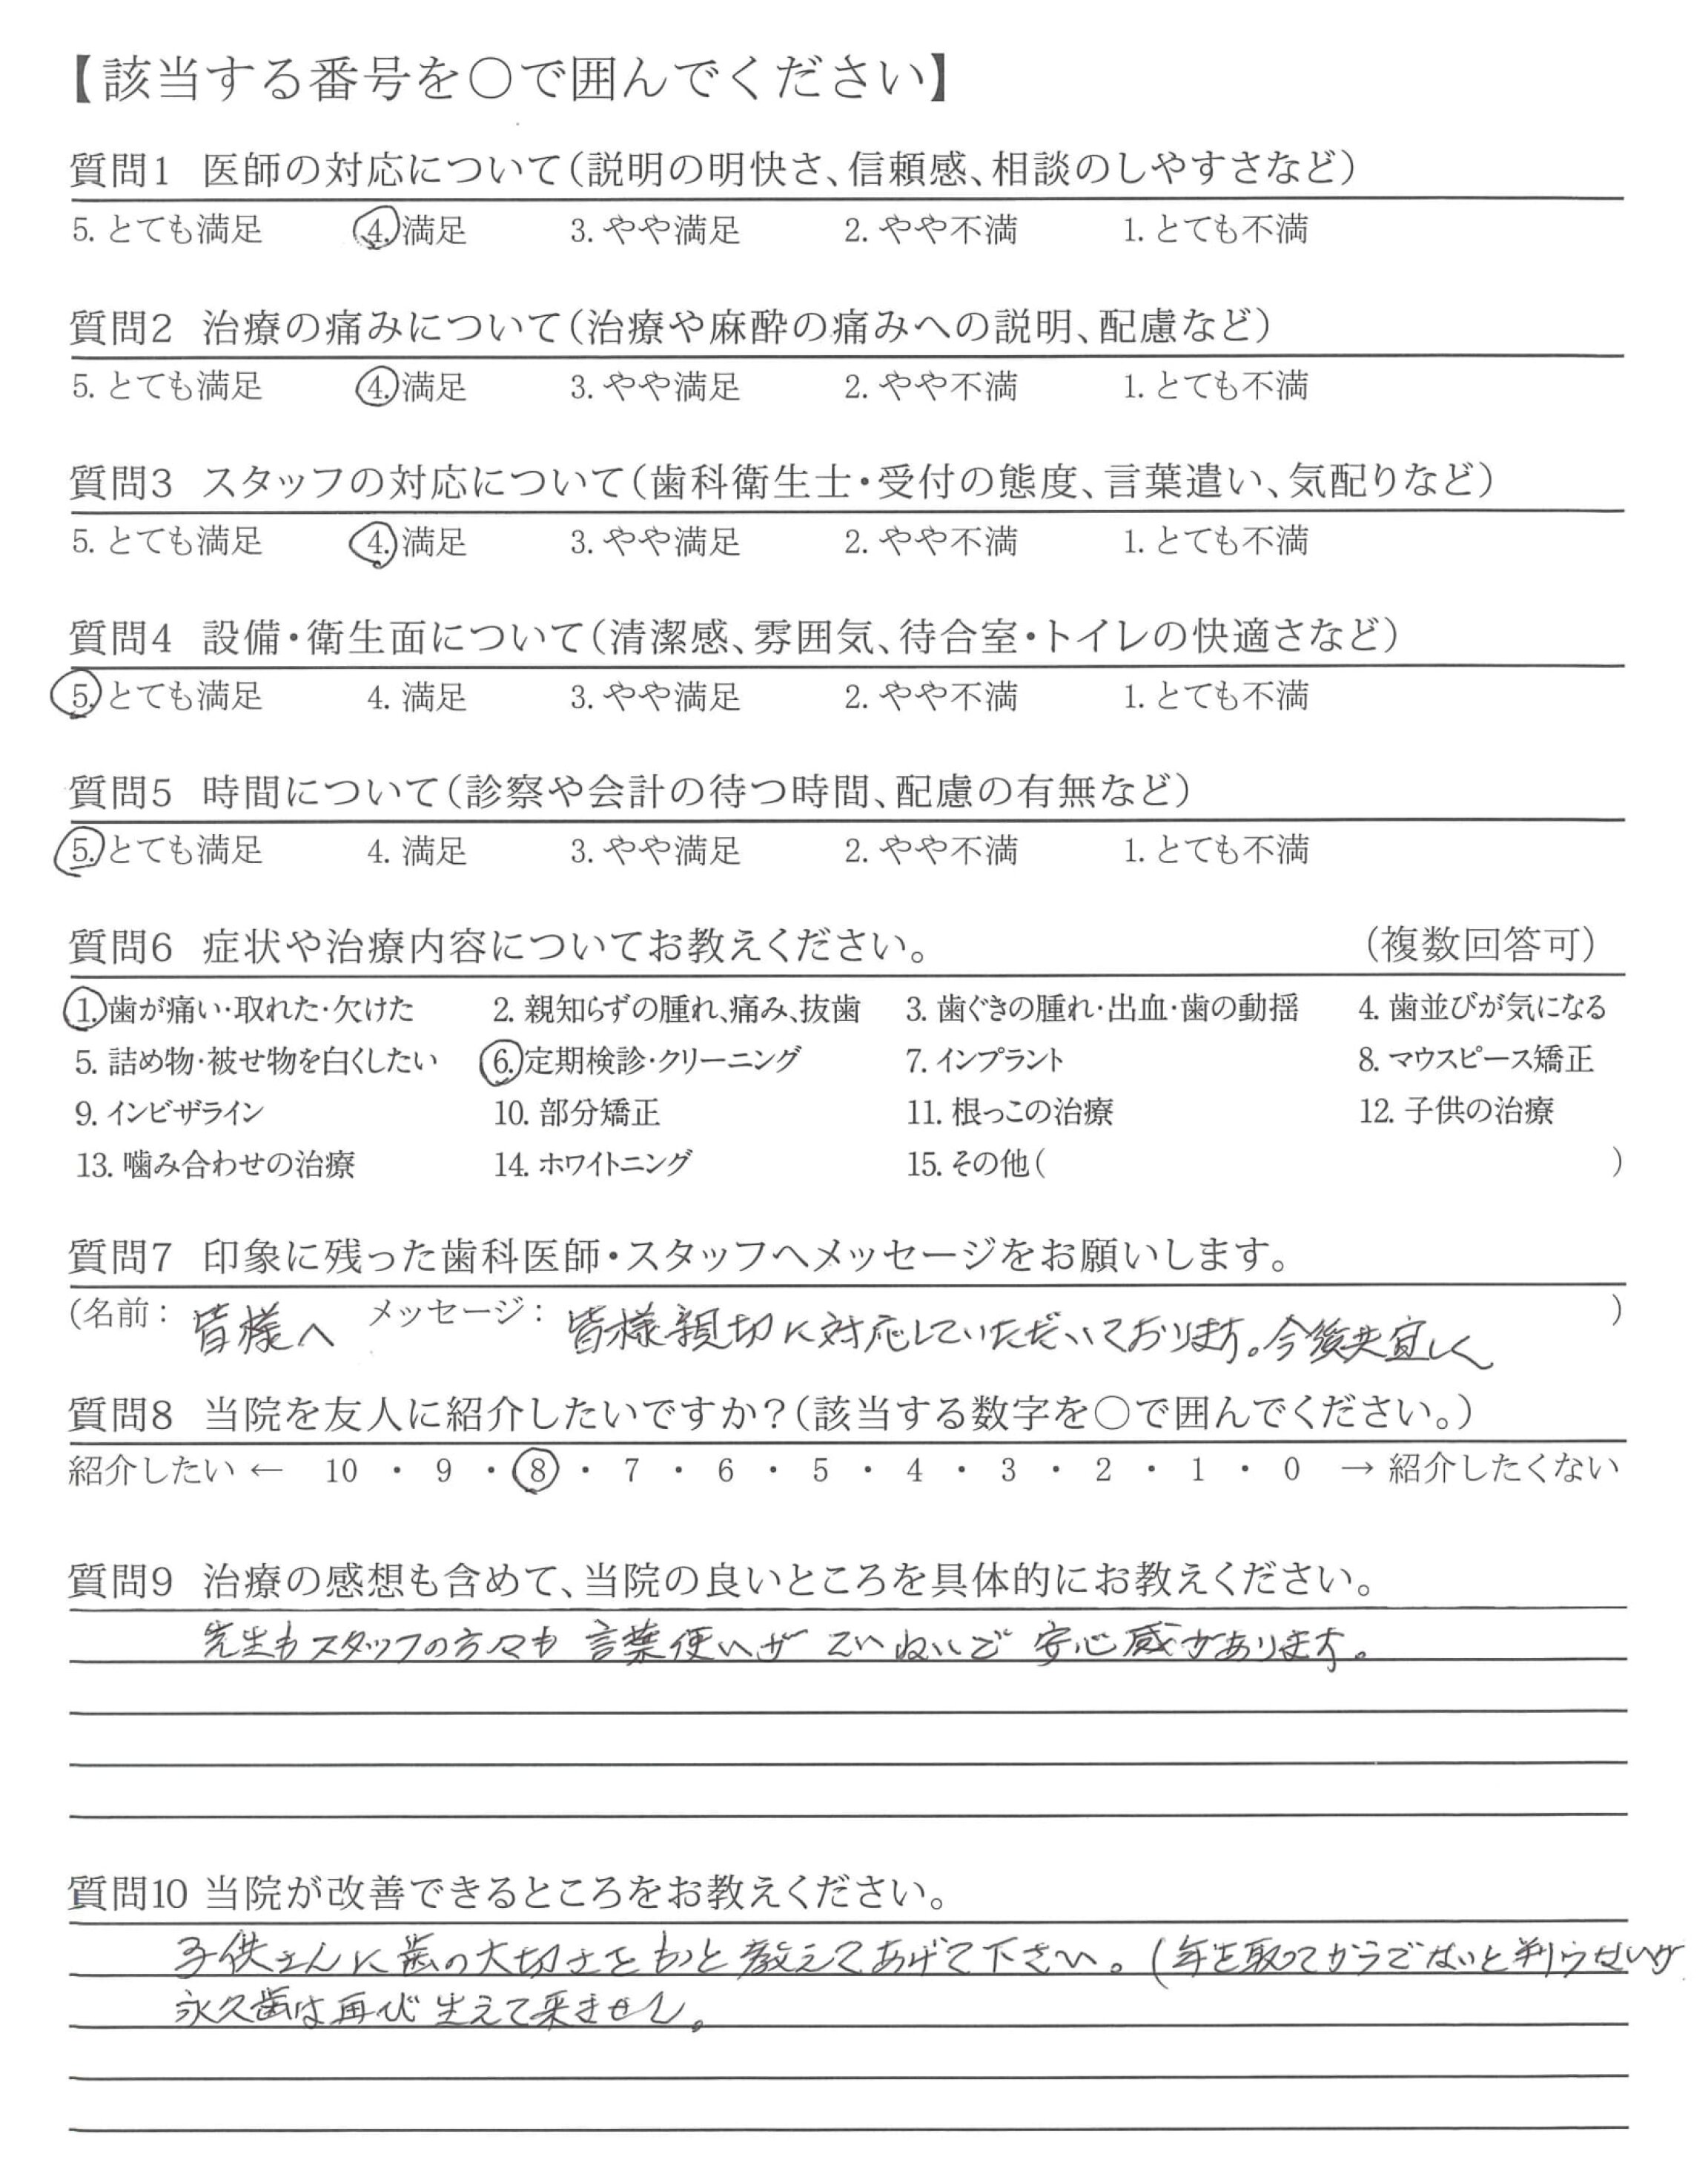 【該当する番号を○で囲んでください】
質問1 医師の対応について(説明の明快さ、信頼感、相談のしやすさなど)
5. とても満足 4. 満足 3. やや満足 2. やや不満 1. とても不満
質問2 治療の痛みについて(治療や麻酔の痛みへの説明、配慮など)
5. とても満足 4. 満足 3. やや満足 2. やや不満 1. とても不満
質問3 スタッフの対応について(歯科衛生士・受付の態度、言葉遣い、気配りなど)
5. とても満足 4. 満足 3. やや満足 2. やや不満 1. とても不満
質問4 設備・衛生面について(清潔感、雰囲気、待合室・トイレの快適さなど)
5. とても満足 4. 満足 3. やや満足 2. やや不満 1. とても不満
質問5 時間について(診察や会計の待つ時間、配慮の有無など)
5. とても満足 4. 満足 3. やや満足 2. やや不満 1. とても不満
質問6 症状や治療内容についてお教えください。 (複数回答可)
1. 歯が痛い・取れた・欠けた 2. 親知らずの腫れ、痛み、抜歯 3. 歯ぐきの腫れ・出血・歯の動揺 4. 歯並びが気になる
5. 詰め物・被せ物を白くしたい 6. 定期検診・クリーニング 7. インプラント 8. マウスピース矯正
9. インビザライン 10. 部分矯正 11. 根っこの治療 12. 子供の治療
13. 噛み合わせの治療 14. ホワイトニング 15. その他( )
質問7 印象に残った歯科医師・スタッフへメッセージをお願いします。
(名前: 皆様へ メッセージ: 皆様親切に対応していただいております。今後共宜しく )
質問8 当院を友人に紹介したいですか?(該当する数字を○で囲んでください。)
紹介したい ← 10 ・ 9 ・ 8 ・ 7 ・ 6 ・ 5 ・ 4 ・ 3 ・ 2 ・ 1 ・ 0 → 紹介したくない
質問9 治療の感想も含めて、当院の良いところを具体的にお教えください。
先生もスタッフの方々も 言葉使いが ていねいで 安心感があります。
質問10 当院が改善できるところをお教えください。
子供さんに歯の大切さをもっと教えてあげて下さい。(年を取ってからでないと判らないが
永久歯は再び生えて来ません。